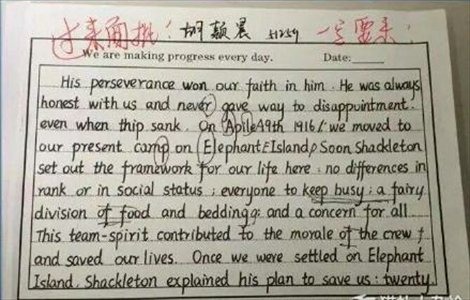 过来面批! 胡颖晨 51259 一定要来!
We are making progress every day. Date:
His perseverance won our faith in him. He was always
honest with us and never gave way to disappointment.
even when thip sank. On Apile49th 1916/. we moved to
our present camp on Elephant Island, Soon Shackleton
set out the framework for our life here: no differences in
rank or in social status; everyone to keep busy; a fairy
division of food and bedding; and a concern for all
This team-spirit contributed to the morale of the crew
and saved our lives. Once we were settled on Elephant
Island, Shackleton explained his plan to save us: twenty